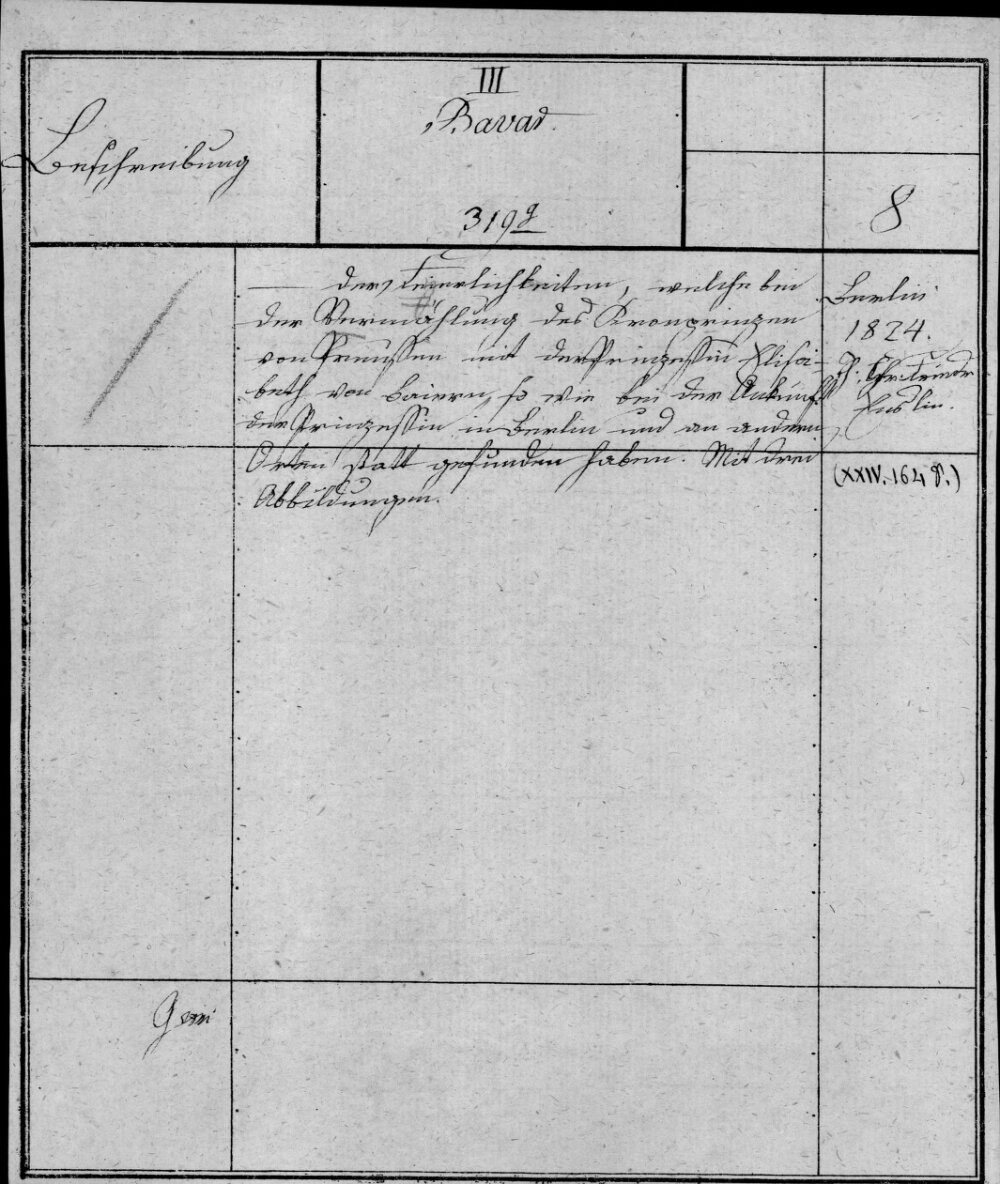 III
Bavar.
Beschreibung
319g
8
— der Feierlichkeiten, welche bei
der Vermählung des Kronprinzen
von Preussen mit der Prinzessin Elisa-
beth von Baiern, so wie bei der Ankunft
der Prinzessin in Berlin und an andern
Orten statt gefunden haben. Mit drei
Abbildungen.
Berlin
1824.
Chr. Friedr
Enslin.
(XXIV. 164 S.)